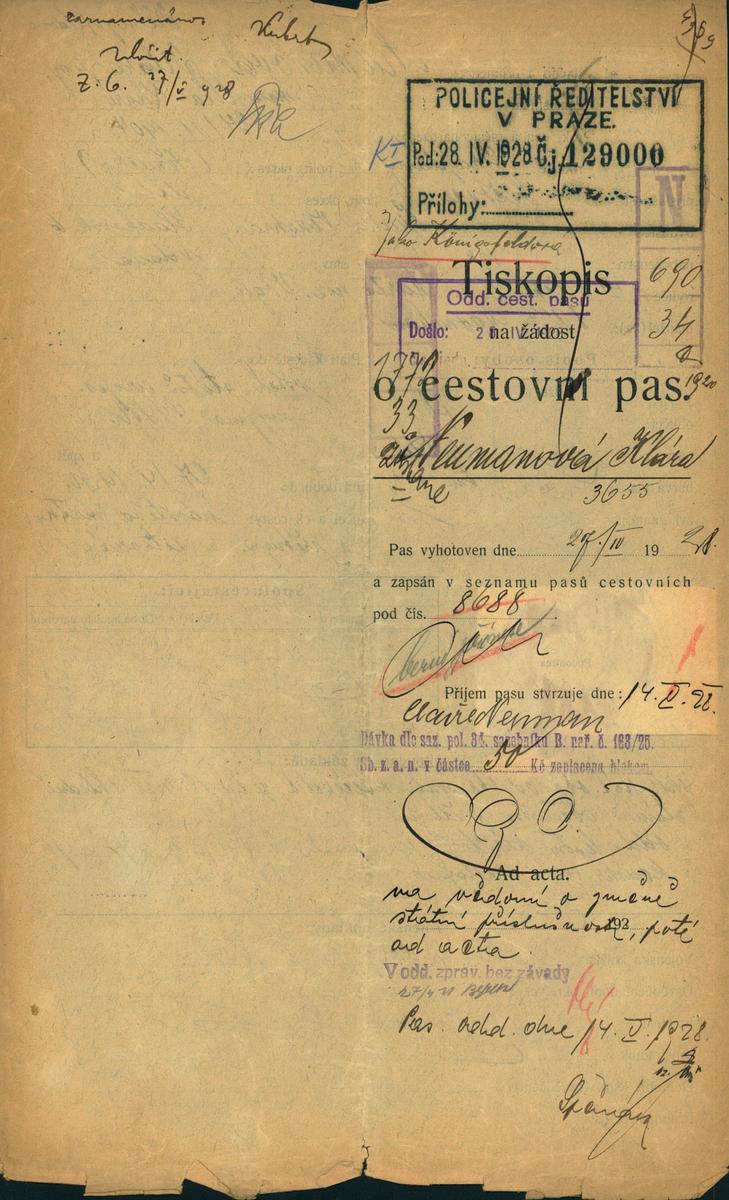 zaznamenáno
Z. 6. 27/V 1928
4369
POLICEJNÍ ŘEDITELSTVÍ
V PRAZE.
KI
Pod: 28. IV. 1928 Čj. 129000
Přílohy:
N
Königsfeldová
690
34
Tiskopis
Odd. cest. pasů
Došlo:
na žádost
1778
33
o cestovní pas.
1920
Neumanová Klára
3655
Pas vyhotoven dne 27/IV 1928.
a zapsán v seznamu pasů cestovních
pod čís. 8688
Příjem pasu stvrzuje dne: 14. V. 28.
Claire Neuman
Dávka dle saz. pol. 34. sazebníku B. nař. č. 163/26.
Sb. z. a. n. v částce 50 Kč zaplacena kolkem.
Ad acta.
na vědomí o změně
192
státní příslušnosti, poté
ad acta.
V odd. zpráv. bez závady
Pas. odd. dne 14. V. 1928.